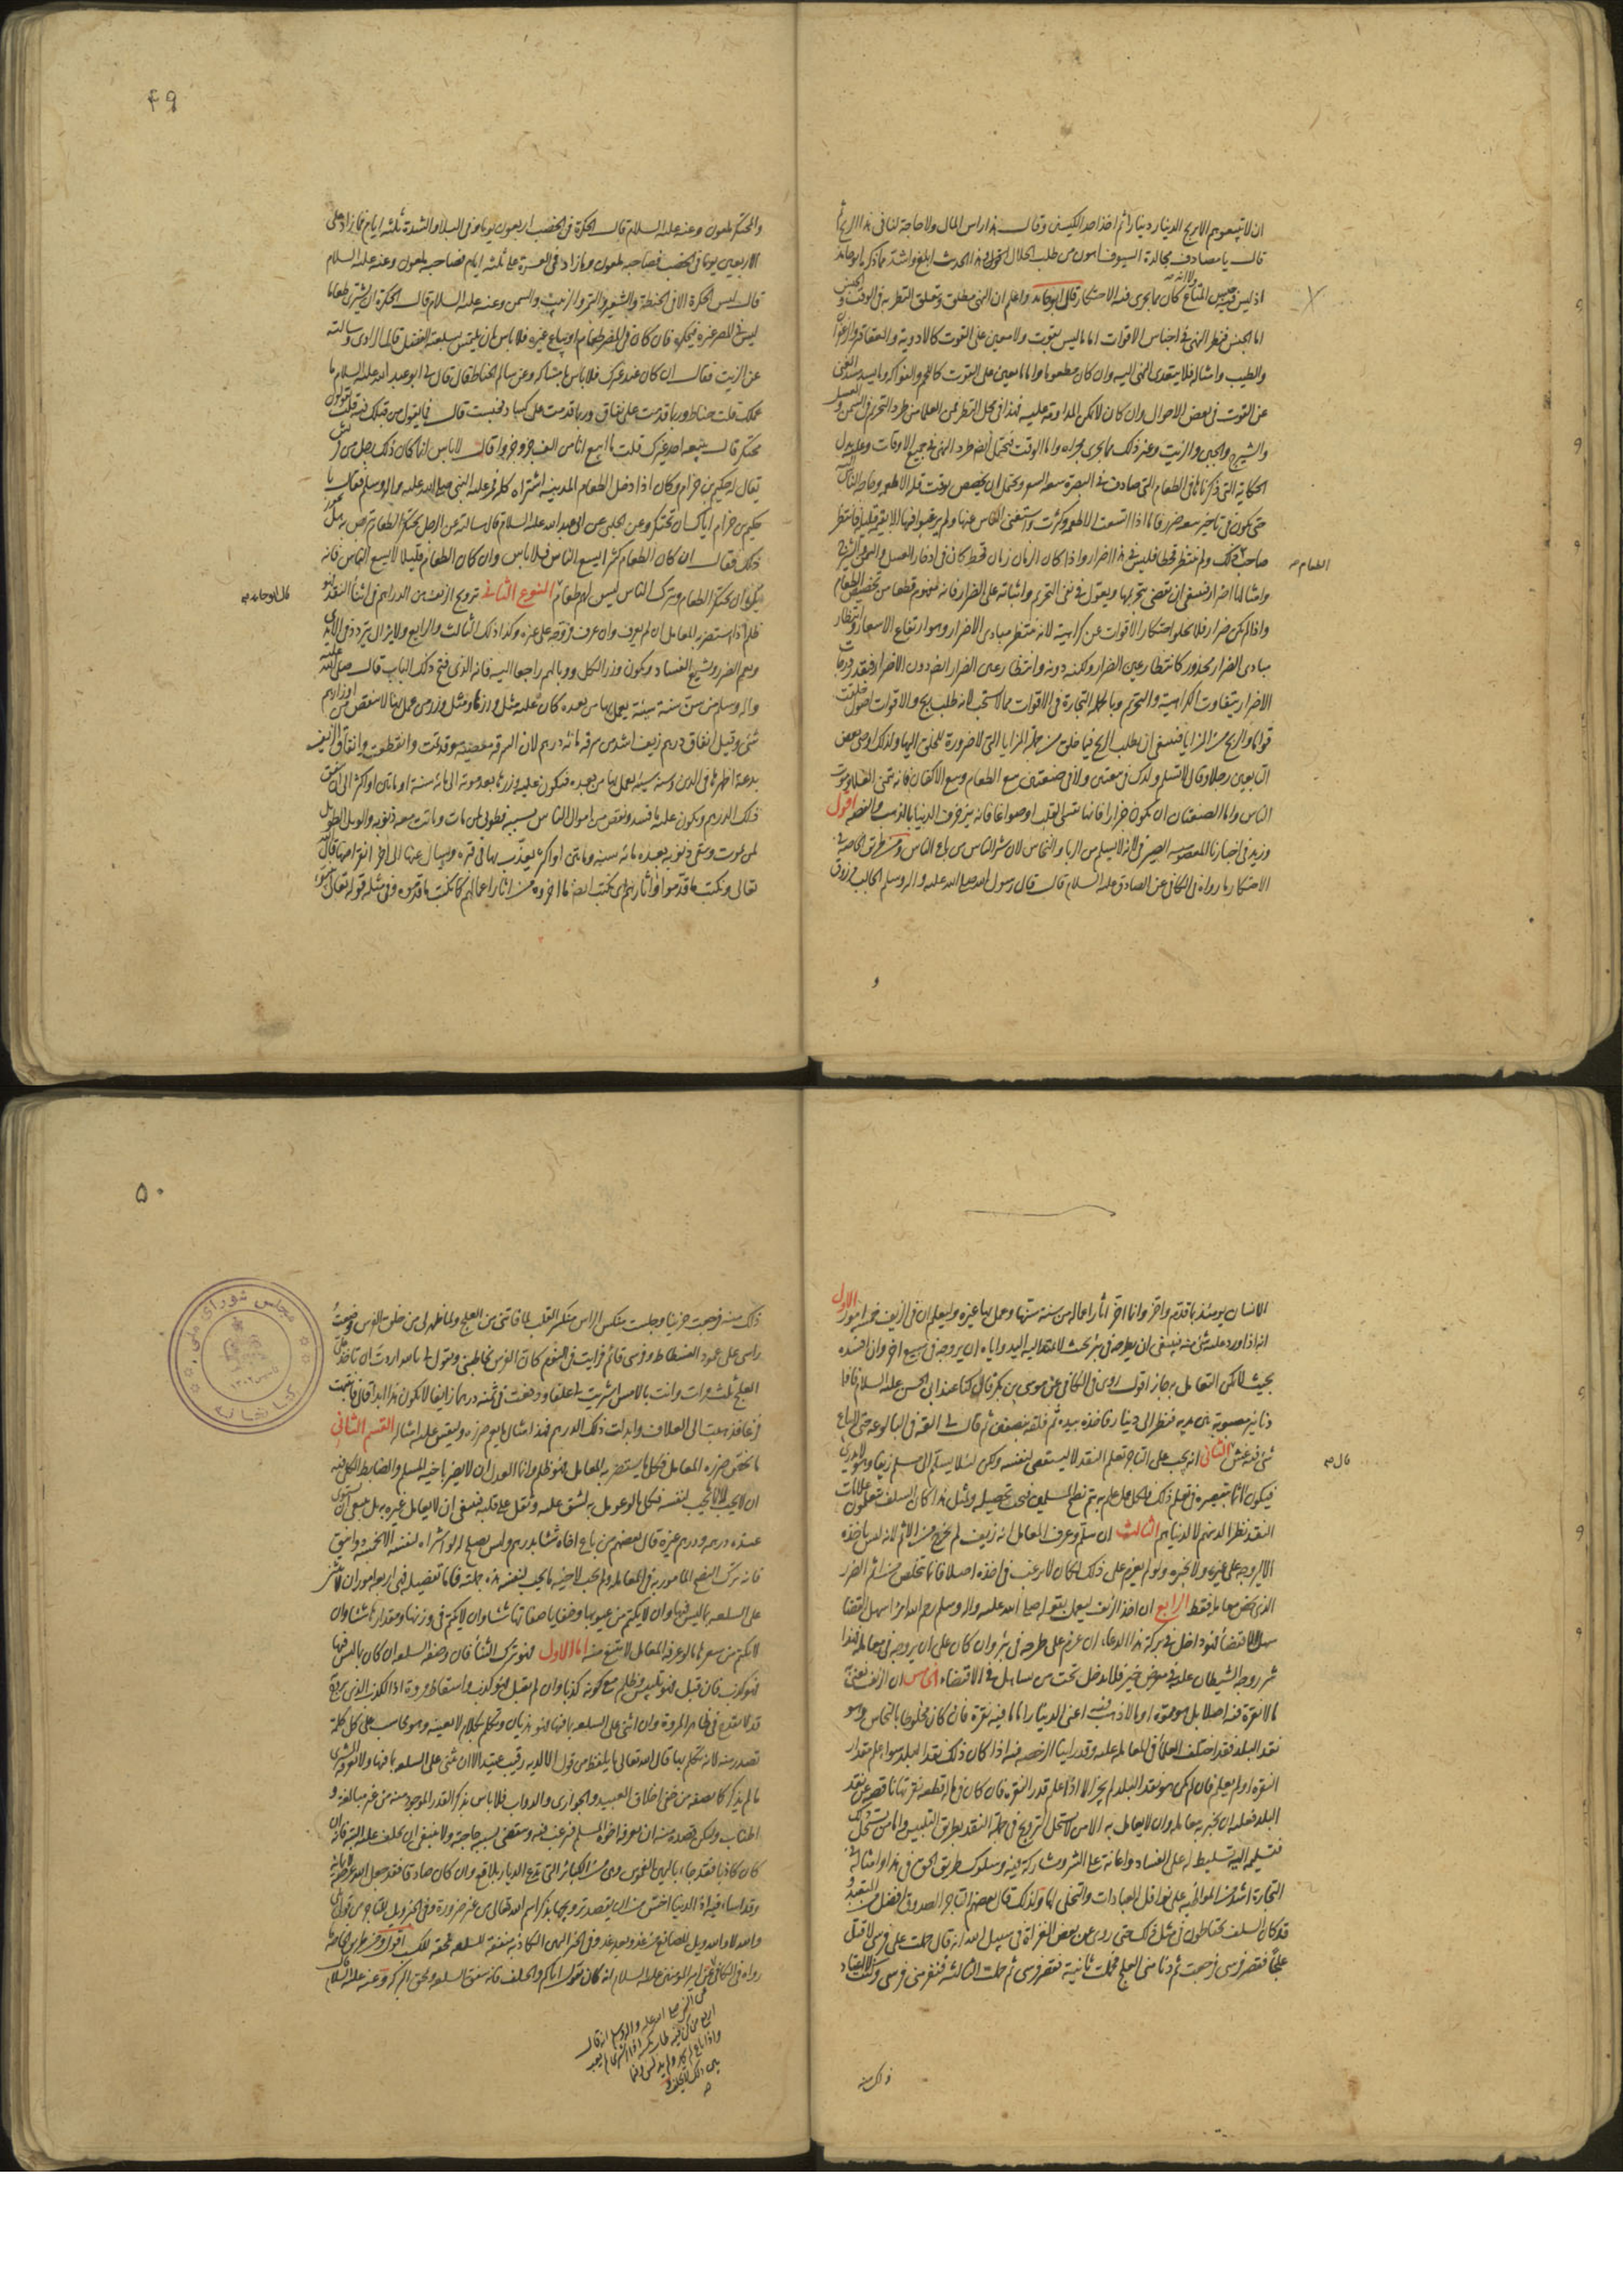 ان لا تبيعوهم الا بربح الدينار دينارا ثم اخذ احد الكيسين وقال هذا راس المال ولا حاجة لنا في هذا الربح ثم
قال يا مصادف مجالدة السيوف اهون من طلب الحلال
اما الجنس فيطرد النهي في اجناس الاقوات اما ما ليس بقوت ولا معين على القوت كالادوية والعقاقير والزعفران
عن القوت في بعض الاحوال وان كان لا يمكن المداومة عليه فهذا في محل النظر فمن العلماء من طرد التحريم في السمن والعسل
والشيرج والجبن والزيت وغير ذلك مما يجري مجراه واما الوقت فيحتمل ايضا طرد النهي في جميع الاوقات وعليه يدل
الحكاية التي ذكرناها في الطعام الذي صادف في البصرة سعة السعر ويحتمل ان يخصص بوقت قلة الاطعمة وحاجة الناس اليه
حتى يكون في تاخير بيعه ضرر فاما اذا اتسعت الاطعمة وكثرت واستغنى الناس عنها ولم يرغبوا فيها الا بقيمة قليلة فانتظر
صاحب ذلك ولم ينتظر قحطا فليس في هذا اضرار واذا كان الزمان زمان قحط كان في ادخار العسل والسمن والشيرج
الطعام
واذا لم يكن ضرار فلا يخلو احتكار الاقوات عن كراهية لانه ينتظر مبادي الاضرار وهو ارتفاع الاسعار وانتظار
مبادي الضرار محذور كانتظار عين الضرار ولكنه دونه وانتظار عين الضرار ايضا دون الاضرار فبقدر درجات
الاضرار يتفاوت الكراهية والتحريم وبالجملة التجارة في الاقوات مما لا يستحب لانه طلب ربح والاقوات اصول خلقت
قواما والربح من المزايا فينبغي ان يطلب الربح فيما خلق من جملة المزايا التي لا ضرورة للخلق اليها ولذلك اوصى بعض
التابعين رجلا وقال لا تسلم ولدك في بيعتين ولا في صنعتين بيع الطعام وبيع الاكفان فانه يتمنى الغلاء وموت
الناس واما الصنعتان ان يكون جزارا فانها تقسي القلب او صواغا فانه يزخرف الدنيا بالذهب والفضة اقول
الاحتكار ما رواه في الكافي عن الصادق عليه السلام قال قال رسول الله صلى الله عليه واله وسلم الجالب مرزوق
و
۴۹
والمحتكر ملعون وعنه عليه السلام قال الحكرة في الخصب اربعون يوما وفي البلاء والشدة ثلثة ايام فما زاد على
الاربعين يوما في الخصب فصاحبه ملعون وما زاد في العسرة على ثلثة ايام فصاحبه ملعون وعنه عليه السلام
قال ليس الحكرة الا في الحنطة والشعير والتمر والزبيب والسمن وعنه عليه السلام قال الحكرة ان يشتري طعاما
ليس في المصر غيره فيحتكره فان كان في المصر طعام او يباع غيره فلا باس بان يلتمس بسلعته الفضل قال الراوي وسالته
عن الزيت فقال ان كان عند غيرك فلا باس بامساكه وعن سالم الحناط قال قال لي ابو عبد الله عليه السلام ما
عملك قلت حناط وربما قدمت على نفاق وربما قدمت على كساد فحبست قال فما يقول من قبلك فيه قلت يقولون
محتكر قال يبيعه احد غيرك قلت ما ابيع انا من الف جزء جزوا قال لا باس انما كان ذلك رجل من قريش
يقال له حكيم بن حزام وكان اذا دخل الطعام المدينة اشتراه كله فمر عليه النبي صلى الله عليه واله وسلم فقال يا
حكيم بن حزام اياك ان تحتكر وعن الحلبي عن ابي عبد الله عليه السلام قال سالته عن الرجل يحتكر الطعام ويتربص به هل يجوز
ذلك فقال ان كان الطعام كثيرا يسع الناس فلا باس وان كان الطعام قليلا لا يسع الناس فانه
يكره ان يحتكر الطعام ويترك الناس ليس لهم طعام النوع الثاني ترويج الزيف من الدراهم في اثناء النقد فهو
قال ابو حامد
ظلم اذ يستضر به المعامل ان لم يعرف وان عرف فيروجه على غيره وكذا ذلك الثالث والرابع ولا يزال يتردد في الايدي
ويعم الضرر ويشيع الفساد ويكون وزر الكل ووباله راجعا اليه فانه الذي فتح ذلك الباب قال صلى الله عليه
واله وسلم من سن سنة سيئة يعمل بها من بعده كان عليه مثل وزرها ومثل وزر من عمل بها لا ينقص من اوزارهم
شيء وقيل انفاق درهم زيف اشد من سرقة مائة درهم لان السرقة معصية وقد تمت وانقطعت وانفاق الزيف
بدعة اظهرها في الدين وسنة سيئة يعمل بها من بعده فيكون عليه وزرها بعد موته الى مائة سنة او مائتين او اكثر الى ان يفنى
ذلك الدرهم ويكون عليه ما فسد ونقص من اموال الناس بسببه فطوبى لمن مات وماتت معه ذنوبه والويل الطويل
لمن يموت وتبقى ذنوبه بعده مائة سنة ومائتي او اكثر يعذب بها في قبره ويسال عنها الى اخر انقراضها قال الله
تعالى ونكتب ما قدموا واثارهم اي نكتب ايضا ما اخروه من اثار اعمالهم كما نكتب ما قدموه وفي مثله قوله تعالى
الانسان يومئذ بما قدم واخر وانما اخر اثار اعماله من سنة سنها وعمل بها غيره وليعلم ان في الزيف خمسة امور الاول
انه اذا ورد عليه شيء منه فينبغي ان يطرحه في بئر بحيث لا تمتد اليه اليد واياه ان يروجه في بيع اخر وان افسده
بحيث لا يمكن التعامل به جاز اقول روى في الكافي عن موسى بن بكر قال كنا عند ابي الحسن عليه السلام فاذا
دنانير مصبوبة بين يديه فنظر الى دينار فاخذه بيده ثم قلعه بنصفين ثم قال لي القه في البالوعة حتى لا يباع
شيء فيه غش الثاني انه يجب على التاجر تعلم النقد لا ليستقصي لنفسه ولكن لئلا يسلم الى مسلم زيفا وهو لا يدري
قال
فيكون اثما بتقصيره في تعلم ذلك
النقد نظرا لدينهم لا لدنياهم الثالث ان سلم وعرف المعامل انه زيف لم يخرج من الاثم لانه ليس ياخذه
الا ليروجه على غيره ولا يخبره ولو لم يعزم على ذلك لكان لا يرغب في اخذه اصلا فانما يتخلص من اثم الضرر
الذي يخص معامله فقط الرابع ان ياخذ الزيف ليعمل بقوله صلى الله عليه واله وسلم رحم الله امرأ سهل القضاء
سهل الاقتضاء فهو داخل في بركة هذا الدعاء ان عزم على طرحه في بئر وان كان على ان يروجه في معاملة فهذا
شر روجه الشيطان عليه في معرض خير فلا يدخل تحت من تساهل في الاقتضاء الخامس ان الزيف نعني به
ما لا نقرة فيه اصلا بل هو مموه او ما لا ذهب فيه اعني الدنانير اما ما فيه نقرة فان كان مخلوطا بالنحاس وهو
النقرة او لم يعلم فان لم يكن هو نقد البلد لم يجز الا اذا علم قدر النقرة فان كان في ماله قطعة نقرتها ناقصة عن نقد
البلد فعليه ان يخبر به معامله وان لا يعامل به الا من لا يستحل الترويج في جملة النقد بطريق التلبيس واما من يستحل ذلك
فتسليمه اليه تسليط له على الفساد واعانة على الشر ومشاركة فيه وسلوك طريق الحق في هذا وامثاله في
التجارة اشد من المواظبة على نوافل العبادات والتخلي لها ولذلك قال بعضهم التاجر الصدوق افضل من المتعبد و
قد كان السلف يحتاطون في مثل ذلك حتى روي عن بعض الغزاة في سبيل الله انه قال حملت على فرسي لاقتل
علجا فقصر فرسي فرجعت ثم دنا مني العلج فحملت ثانية فقصر فرسي ثم حملت الثالثة فنفر مني فرسي وكنت لا اعتاد
ذلك منه
۵۰
ذلك منه فرجعت حزينا وجلست منكس الراس منكسر القلب لما فاتني من العلج وما ظهر لي من خلق الفرس فوضعت
راسي على عمود الفسطاط وفرسي قائم فرايت في النوم كان الفرس يخاطبني ويقول لي بالله اردت ان تاخذ علي
العلج ثلث مرات وانت بالامس اشتريت لي علفا ودفعت في ثمنه درهما زايفا لا يكون هذا ابدا قال فانتبهت
فزعا فذهبت الى العلاف وابدلت ذلك الدرهم فهذا مثال ما يعم ضرره وليقس عليه امثاله القسم الثاني
ما يخص ضرره المعامل فكل ما يستضر به المعامل فهو ظلم وانما العدل ان لا يضر باخيه المسلم والضابط الكلي فيه
ان لا يحب لاخيه الا ما يحب لنفسه فكل ما لو عومل به لشق عليه وثقل على قلبه فينبغي ان لا يعامل غيره به بل ينبغي ان يستوي
عنده درهمه ودرهم غيره قال بعضهم من باع اخاه شيئا بدرهم وليس يصلح له لو اشتراه لنفسه الا بخمسة دوانيق
فانه ترك النصح المامور به في المعاملة ولم يحب لاخيه ما يحب لنفسه هذه جملته فاما تفصيله ففي اربعة امور ان لا يثني
على السلعة بما ليس فيها وان لا يكتم من عيوبها وخفايا صفاتها شيئا وان لا يكتم في وزنها ومقدارها شيئا وان
لا يكتم من سعرها ما لو عرفه المعامل لامتنع منه اما الاول فهو ترك الثناء فان وصفه السلعة ان كان بما ليس فيها
فهو كذب فان قبل فهو تلبيس وظلم مع كونه كذبا وان لم يقبل فهو كذب واسقاط مروة اذ الكذب الذي يروج
قد لا يقدح في ظاهر المروة وان اثنى على السلعة بما فيها فهو هذيان وتكلم بكلام لا يعنيه وهو محاسب على كل كلمة
تصدر منه لانه تكلم بها قال الله تعالى ما يلفظ من قول الا لديه رقيب عتيد الا ان يثني على السلعة بما فيها ولا يعرفه المشتري
ما لم يذكره كما يصفه من خفي اخلاق العبيد والجواري والدواب فلا باس بذكر القدر الموجود منه من غير مبالغة و
اطناب وليكن قصده منه ان يعرفه اخوه المسلم فيرغب فيه وينقضي بسببه حاجته ولا ينبغي ان يحلف عليه البتة فانه ان
كان كاذبا فقد جاء باليمين الغموس وهي من الكبائر التي تدع الديار بلاقع وان كان صادقا فقد جعل الله عرضة لايمانه
وقد اساء فيه اذ الدنيا اخس من ان يقصد ترويجها بذكر اسم الله تعالى من غير ضرورة وفي الخبر ويل للتاجر من بلى
والله ولا والله وويل للصانع من غد وبعد غد وفي الخبر اليمين الكاذبة منفقة للسلعة ممحقة للكسب اقول ومن طريق الخاصة ما
رواه في الكافي عن امير المؤمنين عليه السلام انه كان يقول اياكم والحلف فانه ينفق السلعة ويمحق البركة وعنه عليه السلام قال
عن النبي صلى الله عليه واله وسلم انه قال
اربع من كن فيه طاب مكسبه اذا اشترى لم يعب
واذا باع لم يحمد ولم يدلس وفيما
بين ذلك لا يحلف
مجلس شورای ملی
کتابخانه